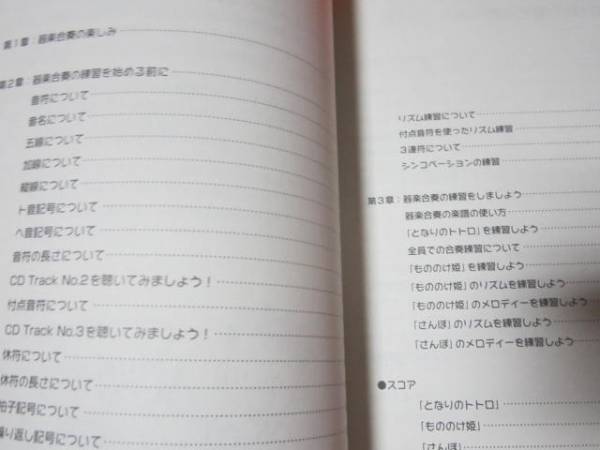 第1章：器楽合奏の楽しみ
第2章：器楽合奏の練習を始める前に
音符について
音名について
五線について
加線について
縦線について
ト音記号について
ヘ音記号について
音符の長さについて
CD Track No.2を聴いてみましょう！
付点音符について
CD Track No.3を聴いてみましょう！
休符について
休符の長さについて
拍子記号について
繰り返し記号について
リズム練習について
付点音符を使ったリズム練習
3連符について
シンコペーションの練習
第3章：器楽合奏の練習をしましょう
器楽合奏の楽譜の使い方
「となりのトトロ」を練習しよう
全員での合奏練習について
「もののけ姫」を練習しよう
「もののけ姫」のリズムを練習しよう
「もののけ姫」のメロディーを練習しよう
「さんぽ」のリズムを練習しよう
「さんぽ」のメロディーを練習しよう
●スコア
「となりのトトロ」
「もののけ姫」
「さんぽ」